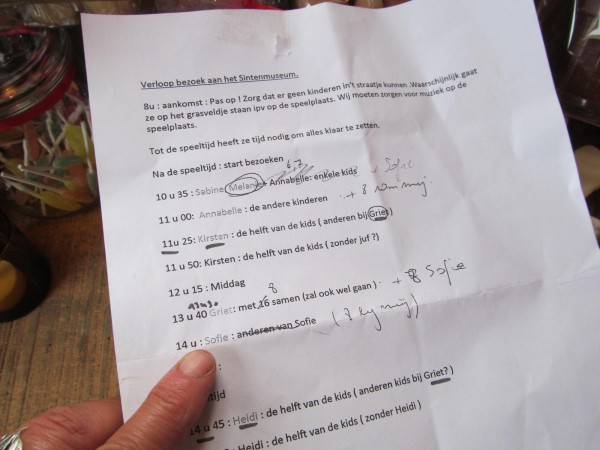 Verloop bezoek aan het Sintenmuseum.
8u : aankomst : Pas op ! Zorg dat er geen kinderen in't straatje kunnen .Waarschijnlijk gaat
ze op het grasveldje staan ipv op de speelplaats. Wij moeten zorgen voor muziek op de
speelplaats.
Tot de speeltijd heeft ze tijd nodig om alles klaar te zetten.
Na de speeltijd : start bezoeken
6,7
10 u 35 : Sabine Melanie+ Annabelle: enkele kids Sofie
11 u 00: Annabelle : de andere kinderen + 8
11u 25: Kirsten : de helft van de kids ( anderen bij Griet)
11 u 50: Kirsten : de helft van de kids ( zonder juf ?)
12 u 15 : Middag
8
13 u 40 Griet: met 16 samen (zal ook wel gaan ) + 8 Sofie
14 u : Sofie : anderen van Sofie (7 bij mij)
:
tijd
14 u 45 : Heidi : de helft van de kids ( anderen kids bij Griet? )
: Heidi : de helft van de kids ( zonder Heidi )